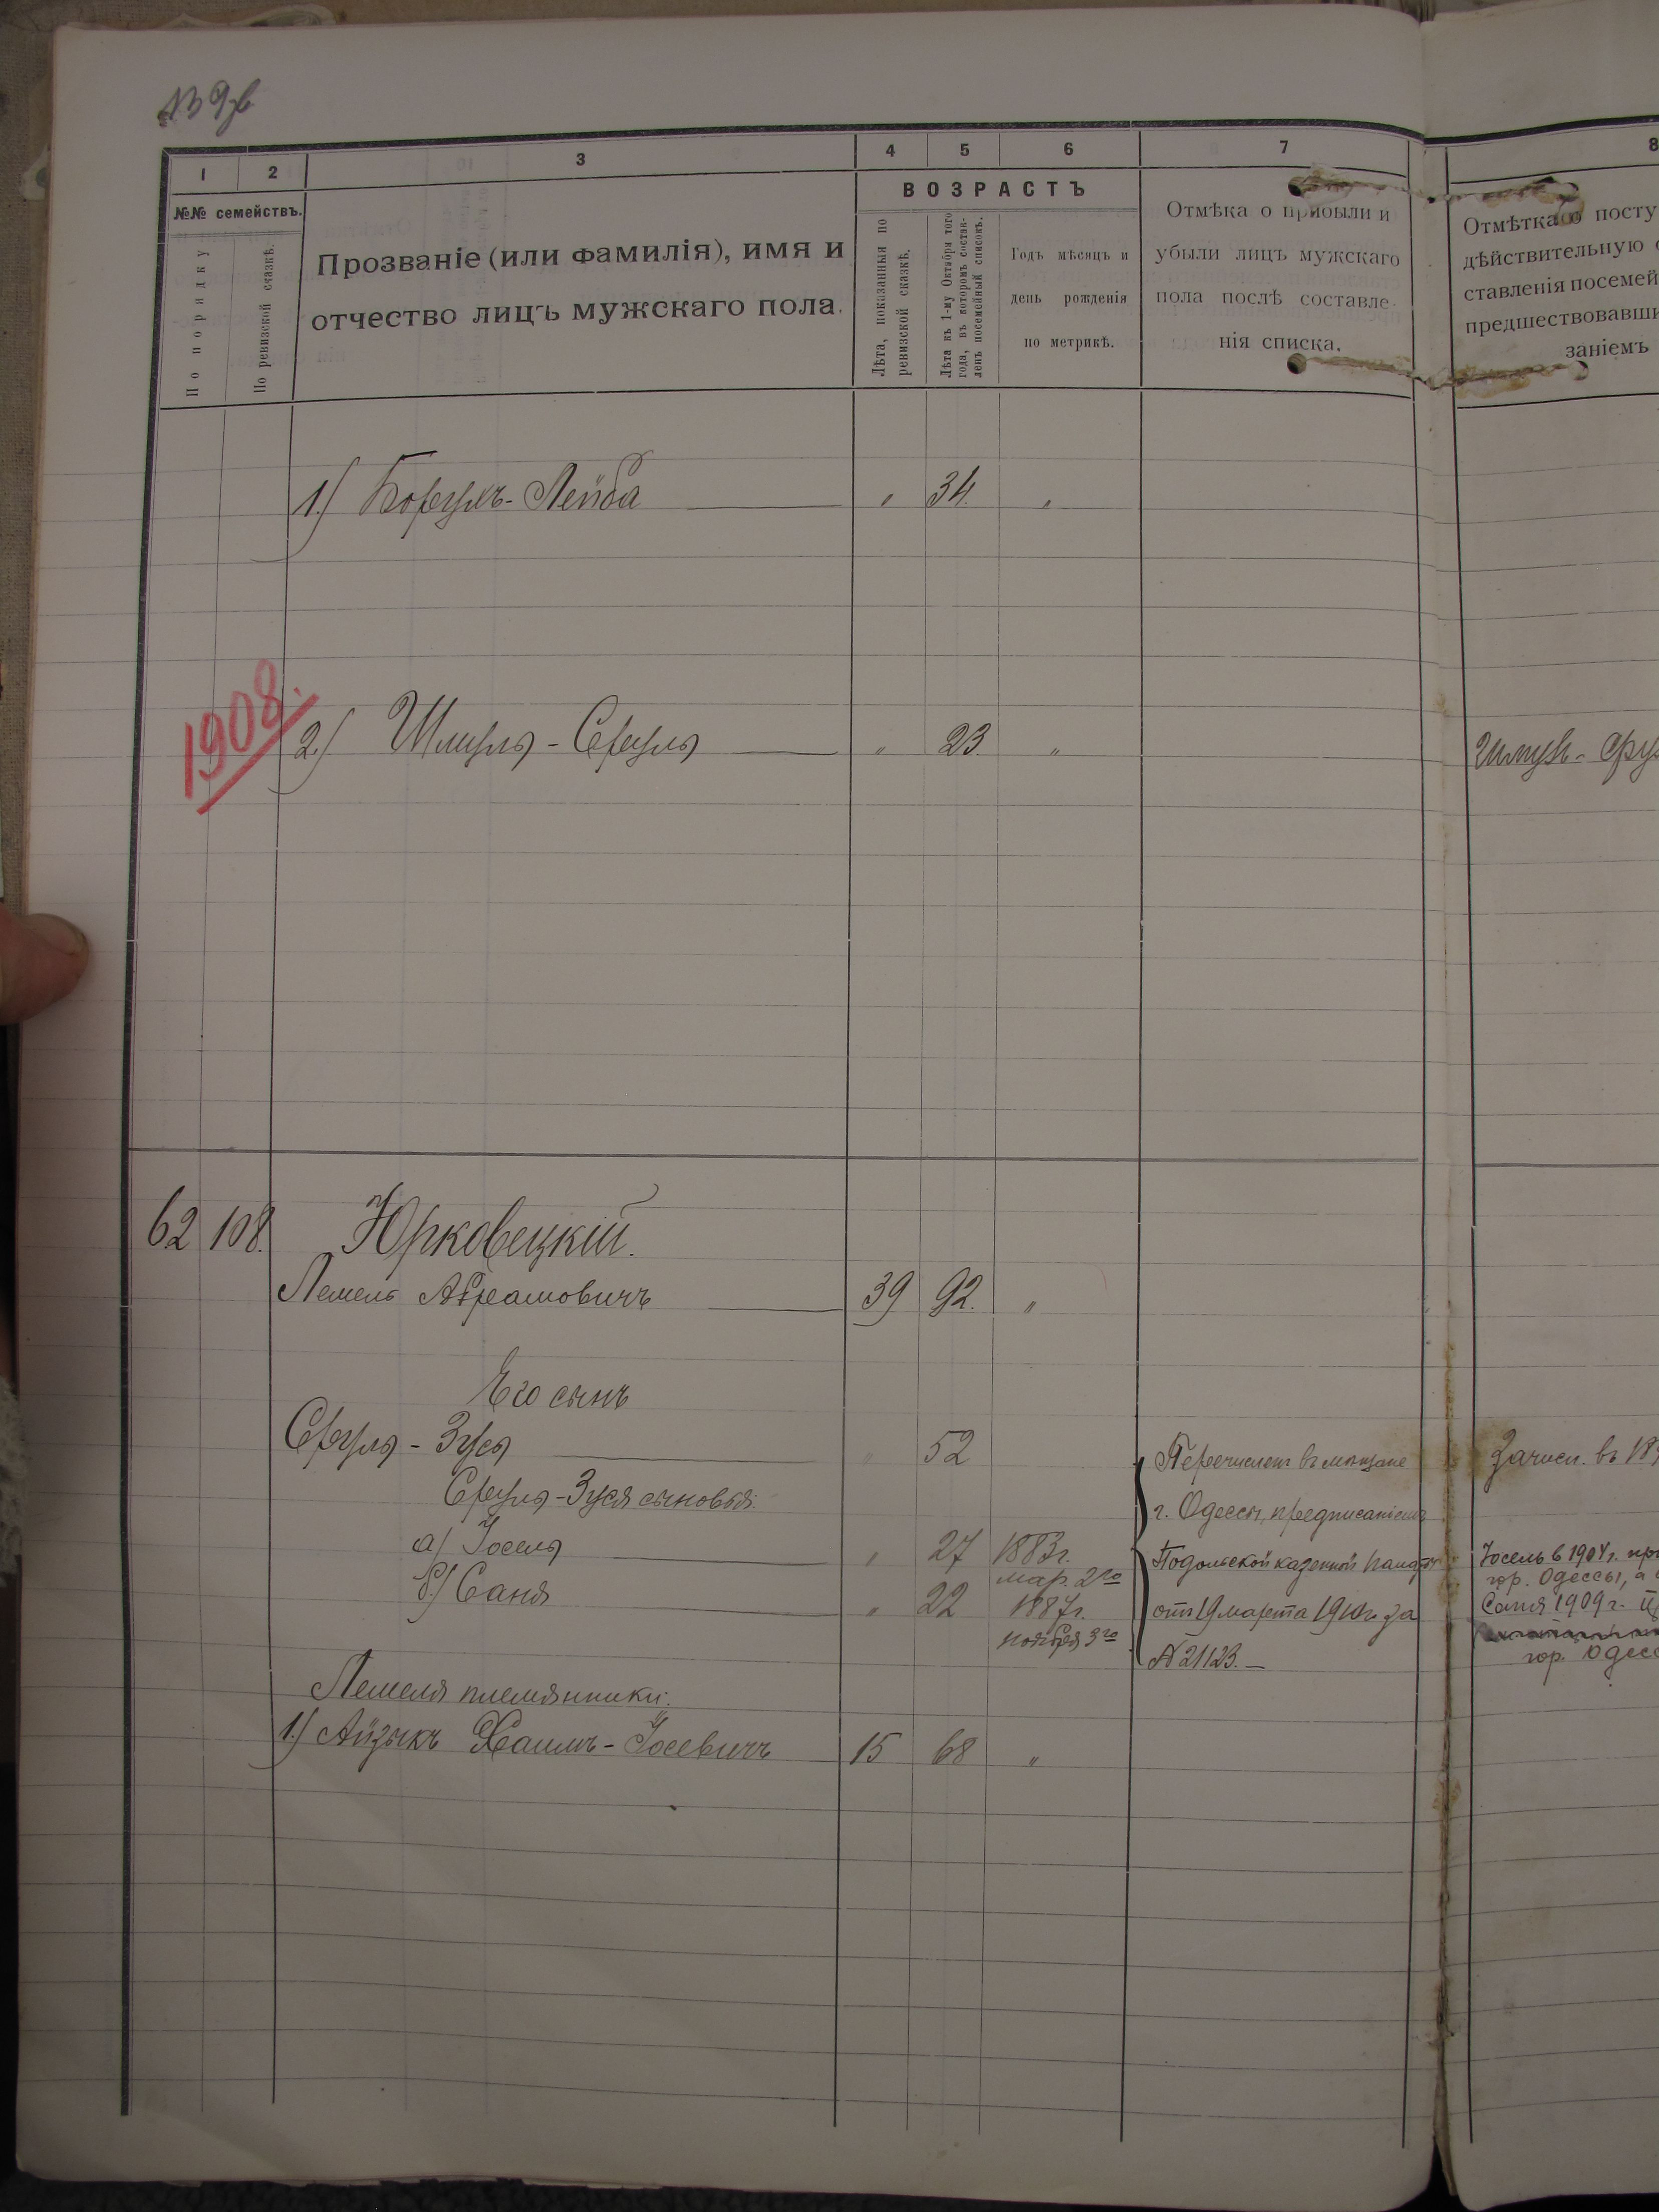 1 2 3 4 5 6 7 8
№№ семействъ.
По порядку
По ревизской сказкѣ.
Прозваніе (или фамилія), имя и
отчество лицъ мужскаго пола.
ВОЗРАСТЪ
Лѣта, показанныя по
ревизской сказкѣ.
Лѣта къ 1-му Октября того
года, въ которомъ состав-
ленъ посемейный списокъ.
Годъ мѣсяцъ и
день рожденія
по метрикѣ.
Отмѣка о прибыли и
убыли лицъ мужскаго
пола послѣ составле-
нія списка.
Отмѣтка о посту
дѣйствительную
ставленія посемей
предшествовавши
заніемъ
1.) Борухъ-Лейба „ 34. „
1908.
2.) Шмуль-Сруль „ 23. „
Шмуль-Сру
62 108. Юрковецкій.
Лемель Абрамовичъ 39 92. „
Его сынъ
Сруль-Зуся „ 52
Сруля-Зуся сыновья:
а) Іосель „ 27 1883г.
мар. 2го
б) Саня „ 22 1887г.
ноября 3го
Перечислен въ мѣщане
г. Одессы, предписаніемъ
Подольской казенной палаты
отъ 19 марта 1910г. за
№ 21123.—
Зачисл. въ 18
Іосель в 1904г. пр
гор. Одессы, а
Саня 1909 г.
гор. Одес
Лемеля племянники:
1.) Айзыкъ Хаимъ-Іосевичъ 15 68 „